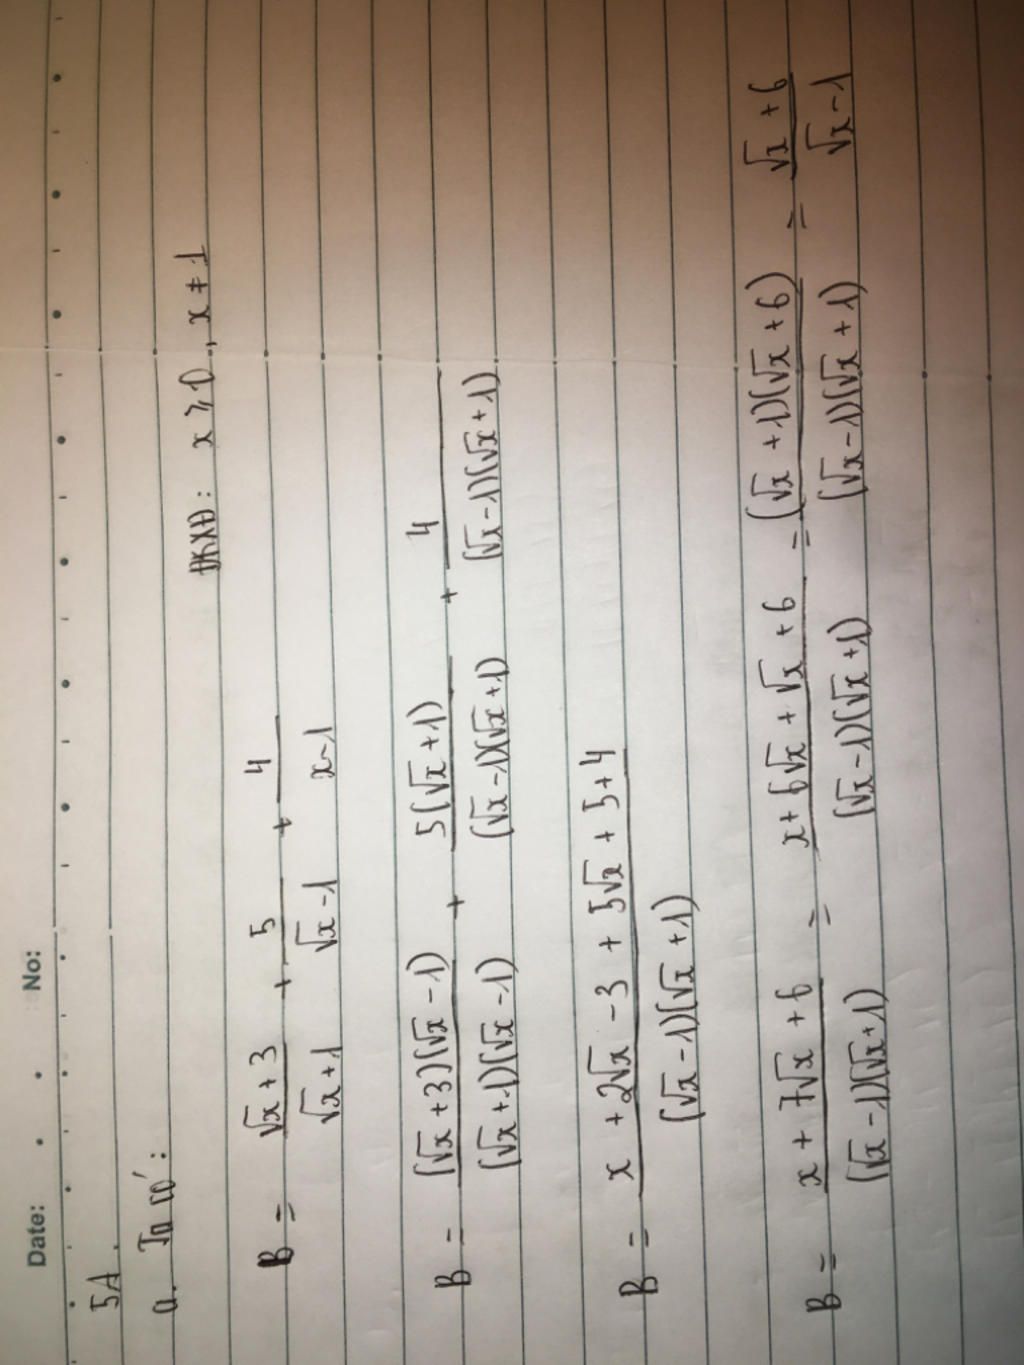 Date: No:
5A.
a. Ta có:
ĐKXĐ: x ⩾ 0, x ≠ 1
B = (√x + 3)/(√x + 1) + 5/(√x - 1) + 4/(x - 1)
B = ((√x + 3)(√x - 1))/((√x + 1)(√x - 1)) + (5(√x + 1))/((√x - 1)(√x + 1)) + 4/((√x - 1)(√x + 1))
B = (x + 2√x - 3 + 5√x + 5 + 4)/((√x - 1)(√x + 1))
B = (x + 7√x + 6)/((√x - 1)(√x + 1)) = (x + 6√x + √x + 6)/((√x - 1)(√x + 1)) = ((√x + 1)(√x + 6))/((√x - 1)(√x + 1)) = (√x + 6)/(√x - 1)